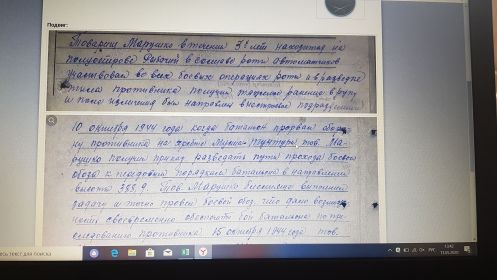 Подвиг:
Товарищ Марушко в течении 3х лет находится на
полуострове Рыбачий в составе роты автоматчиков
участвовал во всех боевых операциях роты и в разведке
противника получил тяжелое ранение в руку
и после излечения был направлен в подразделение
10 октября 1944 года когда батальон прорвал оборо-
ну противника на хребте Муста-Тунтури тов. Ма-
рушко получил приказ разведать пути прохода боевого
обоза к боевым порядкам батальона в направлении
высоты 388.9. Тов. Марушко выполнил
задачу и точно провел боевой обоз что дало возмож-
ность своевременно обеспечить бой батальона по пре-
следованию противника. 15 октября 1944 года тов.
текст для поиска
РУС
13:42